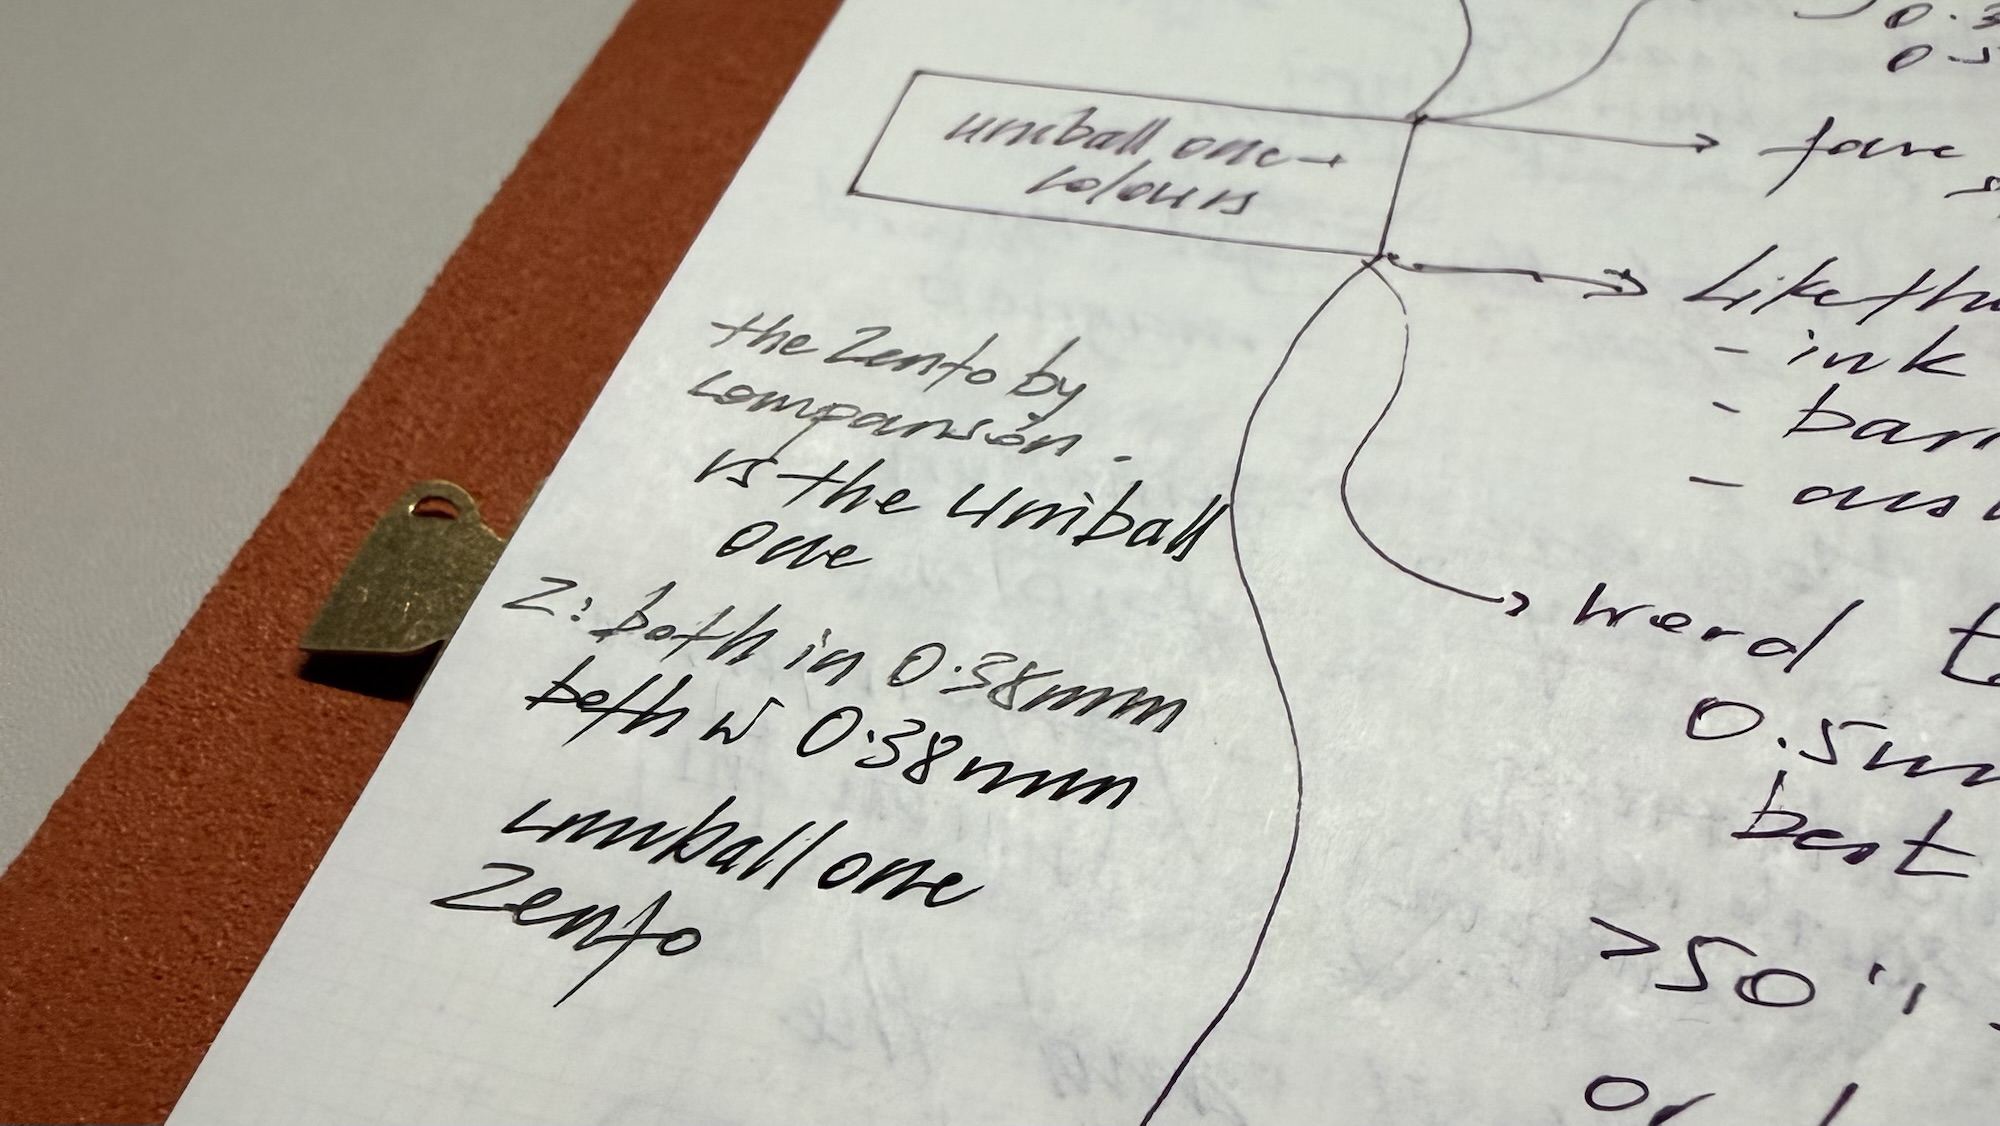 0.3
0.5
uniball one →
colours
fave
Like th
- ink
- bar
-
the Zento by
comparison.
vs the uniball
one
Z: both in 0.38mm
both w 0.38mm
uniball one
Zento
0.5m
best
>50"
or